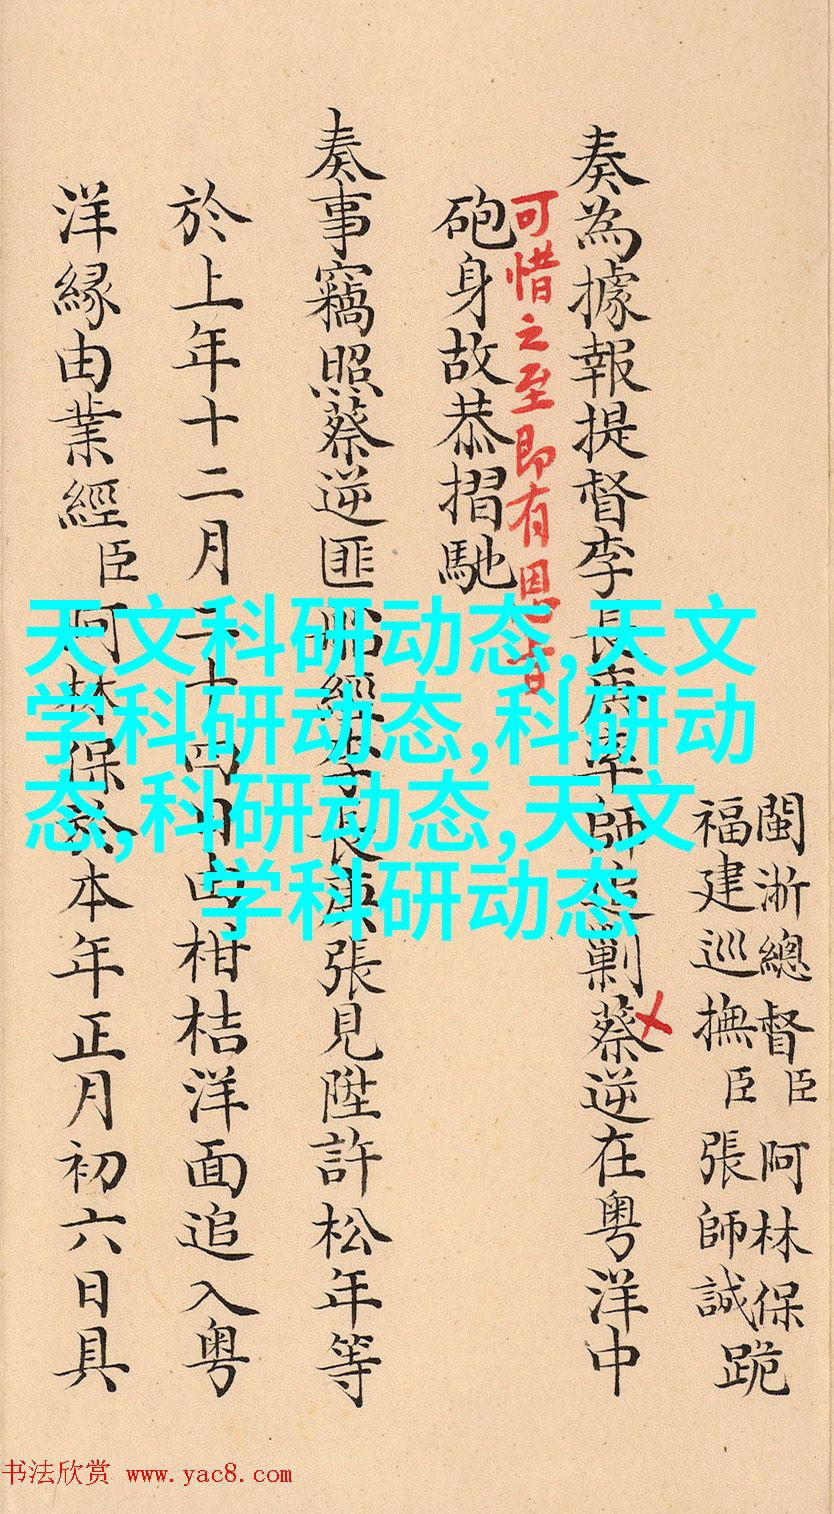 閩浙總督臣阿林保
福建巡撫臣張師誠跪
奏為據報提督李長庚率師追剿蔡逆在粵洋中
可惜之至即有恩旨
砲身故恭摺馳
奏事竊照蔡逆匪船經李長庚張見陞許松年等
於上年十二月二十四日由柑桔洋面追入粵
洋緣由業經臣阿林保於本年正月初六日具
天文科研动态,天文
学科研动态,科研动
态,科研动态,天文
学科研动态
书法欣赏 www.yac8.com